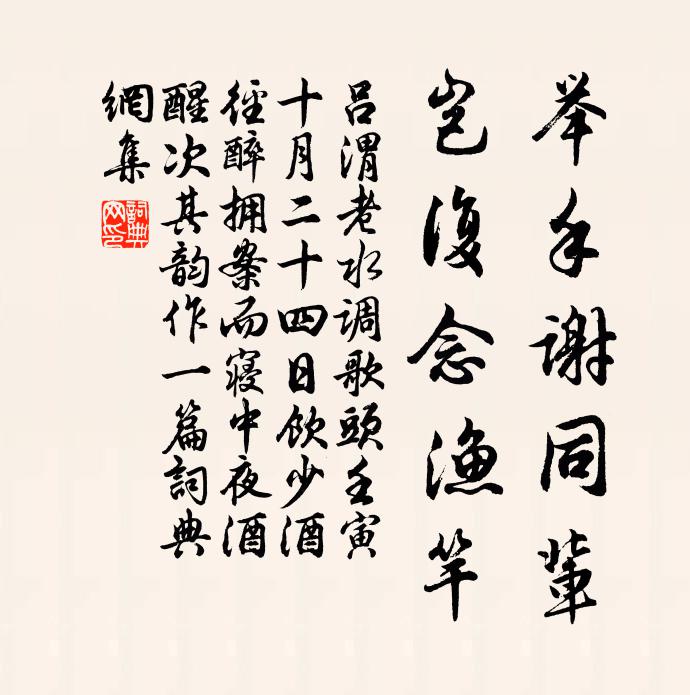 举手谢同辈
岂復念渔竿
吕渭老水调歌頭壬寅
十月二十四日饮少酒
径醉拥案而寝中夜酒
醒次其韵作一篇詞典
網集
詞典
网印